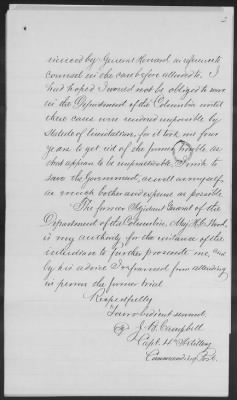 evinced by General Howard in reference to
counsel in the case before alluded to. I
had hoped I would not be obliged to serve
in the Department of the Columbia until
these cases were rendered impossible by
statute of limitations, for it took me four
years to get rid of the former trouble, as
that appears to be impracticable I wish to
save the Government, as well as myself,
as much bother and expense as possible.
The former Adjutant General of the
Department of the Columbia, Maj. H. C. Wood,
is my authority for the existence of the
intention to further prosecute me, and
by his advice I refrained from attending
in person the former trial.
Respectfully
Your obedient servant
J. B. Campbell
Capt. 4th Artillery
Commanding Post.